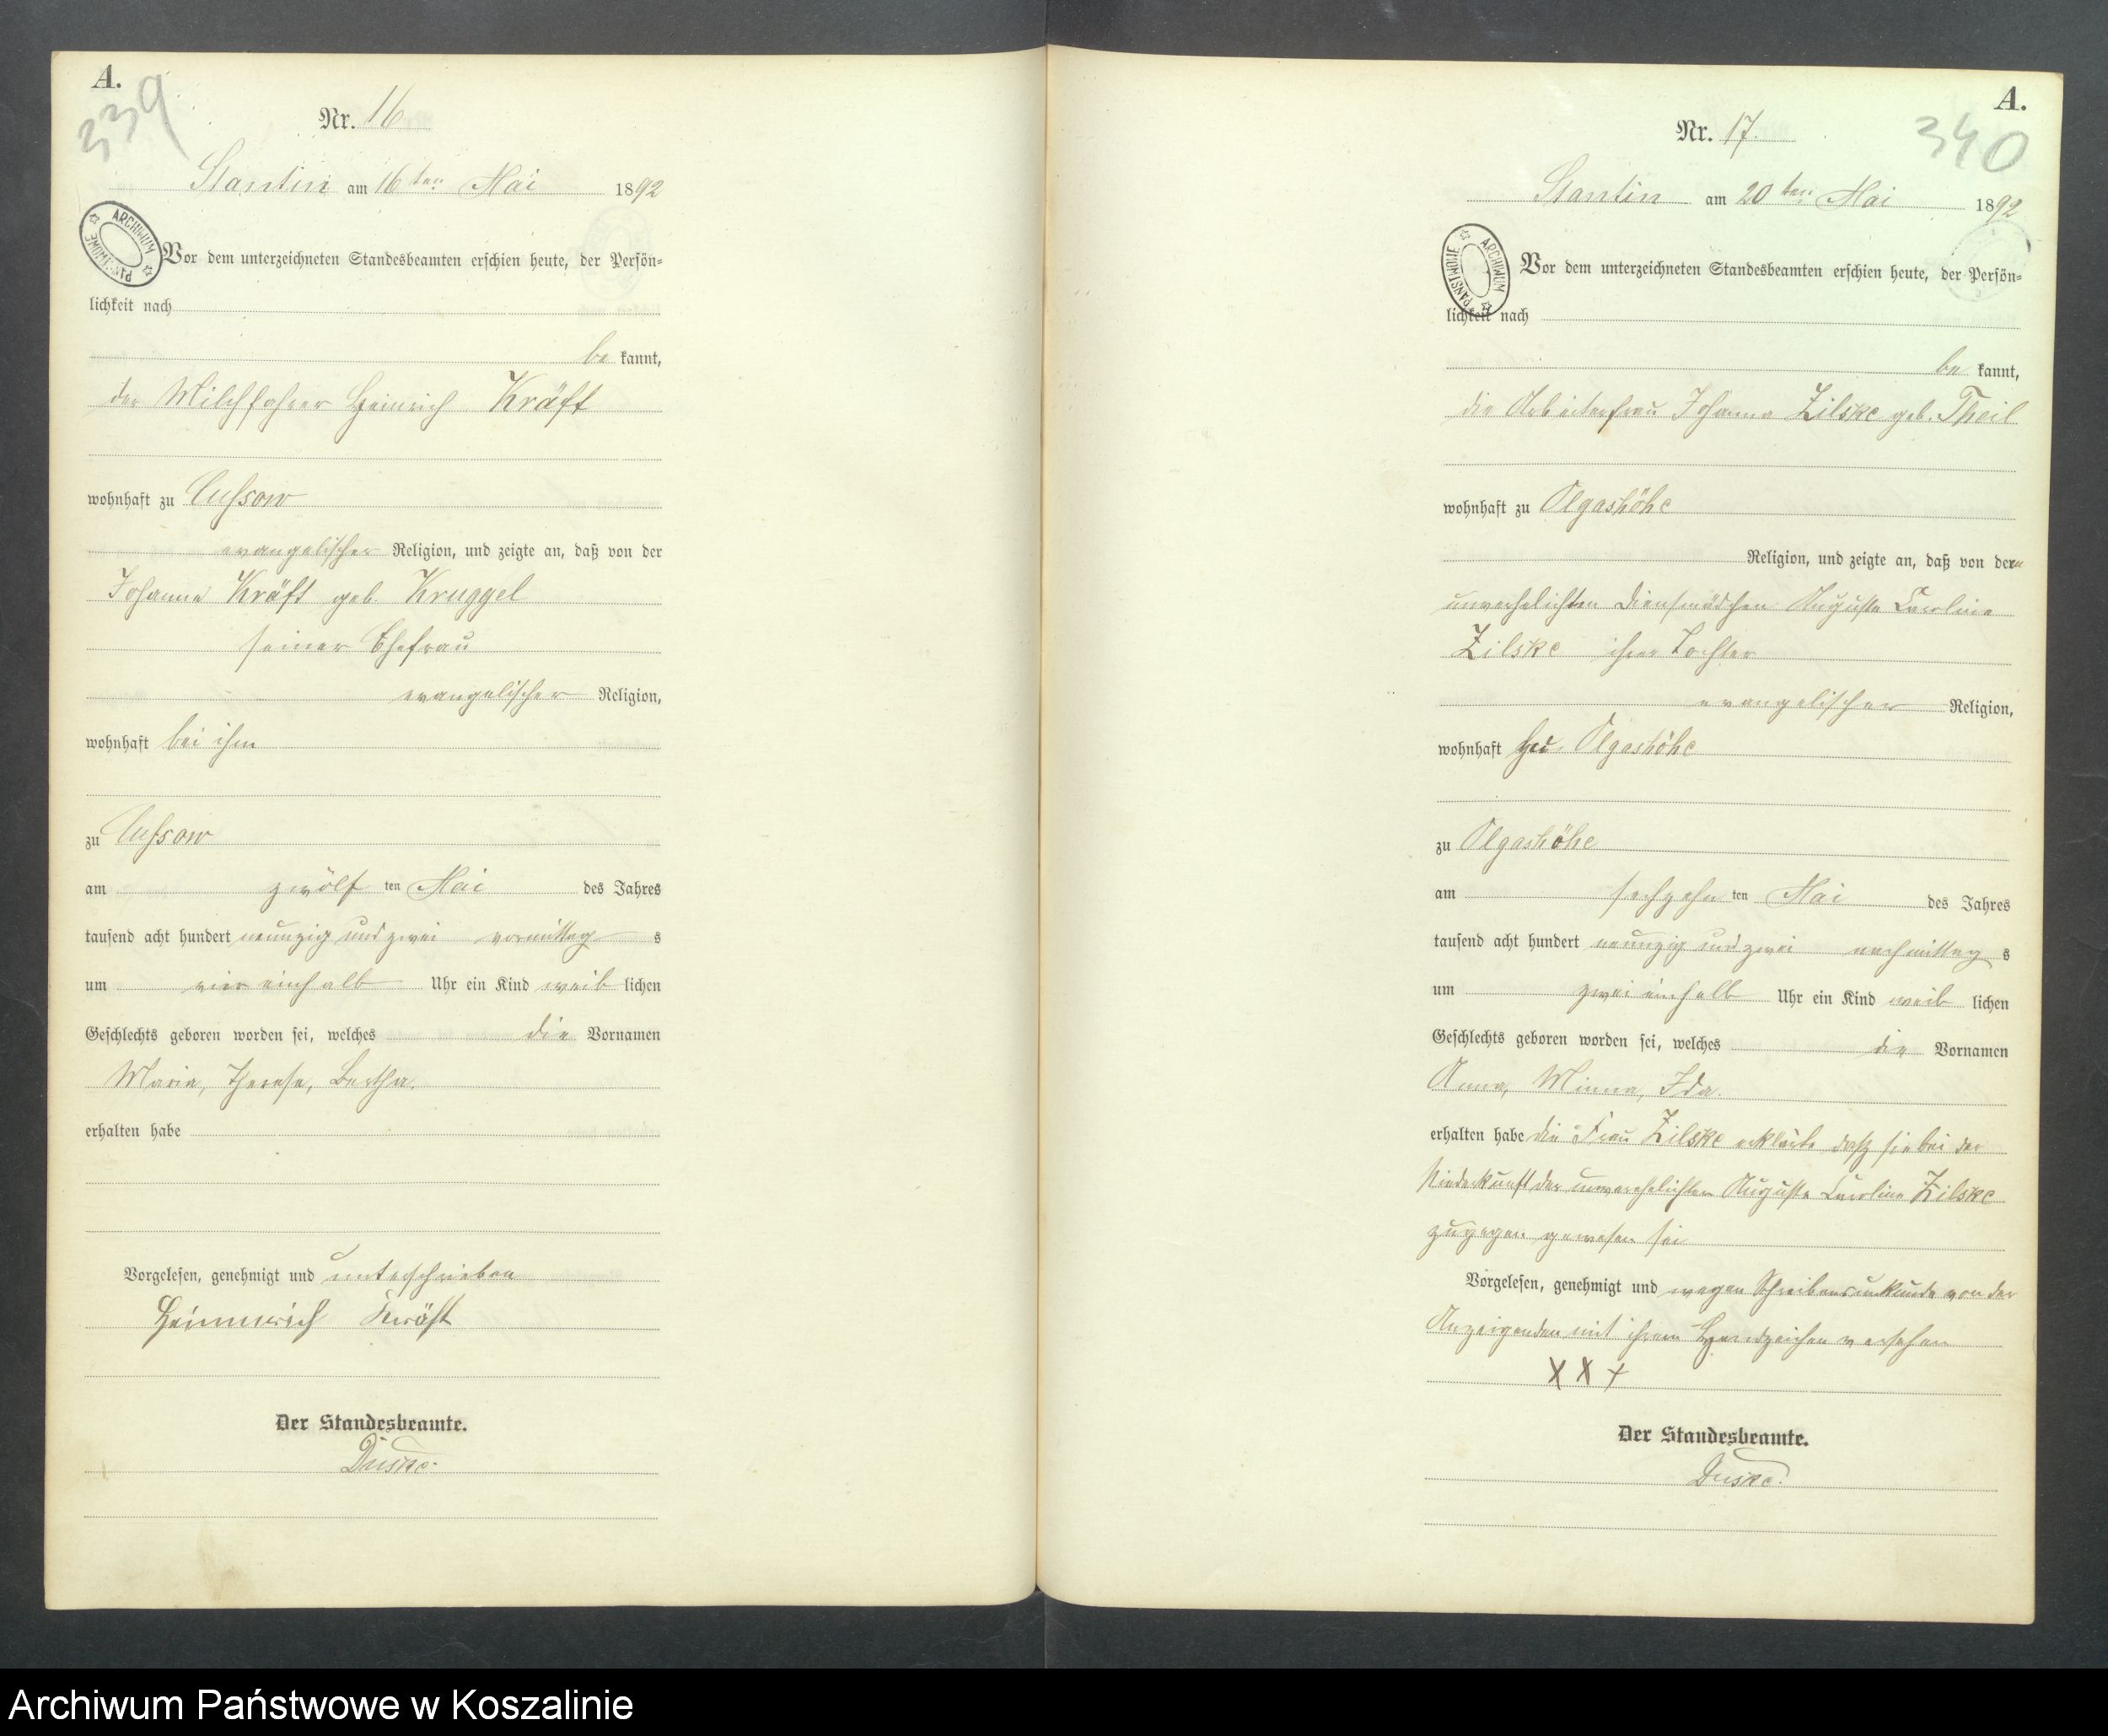 A.
339
Nr. 16
Stantin am 16ten Mai 1892
ARCHIWUM PAŃSTWOWE
Vor dem unterzeichneten Standesbeamten erschien heute, der Persön-
lichkeit nach
be kannt,
der Milchfahrer Heinrich Kräft
wohnhaft zu Cussow
evangelischer Religion, und zeigte an, daß von der
Johanna Kräft geb. Kruggel
seiner Ehefrau
evangelischer Religion,
wohnhaft bei ihm
zu Cussow
am zwölf ten Mai des Jahres
tausend acht hundert neunzig und zwei vormittag s
um vier einhalb Uhr ein Kind weib lichen
Geschlechts geboren worden sei, welches die Vornamen
Maria, Therese, Bertha.
erhalten habe
Vorgelesen, genehmigt und unterschrieben
Heinnrich Kräft
Der Standesbeamte.
Duske.
A.
340
Nr. 17.
Stantin am 20ten Mai 1892
ARCHIWUM PAŃSTWOWE
Vor dem unterzeichneten Standesbeamten erschien heute, der Persön-
lichkeit nach
be kannt,
die Arbeiterfrau Johanna Zilske geb. Theil
wohnhaft zu Olgashöhe
Religion, und zeigte an, daß von der
unverehelichten Dienstmädchen Auguste Caroline
Zilske ihrer Tochter
evangelischer Religion,
wohnhaft zu Olgashöhe
zu Olgashöhe
am sechzehn ten Mai des Jahres
tausend acht hundert neunzig und zwei nachmittag s
um zwei einhalb Uhr ein Kind weib lichen
Geschlechts geboren worden sei, welches die Vornamen
Anna, Minna, Ida.
erhalten habe die Frau Zilske erklärte daß sie bei der
Niederkunft der unverehelichten Auguste Caroline Zilske
zugegen gewesen sei
Vorgelesen, genehmigt und wegen Schreibensunkunde von der
Anzeigenden mit ihrem Handzeichen versehen
X X X
Der Standesbeamte.
Duske.
Archiwum Państwowe w Koszalinie